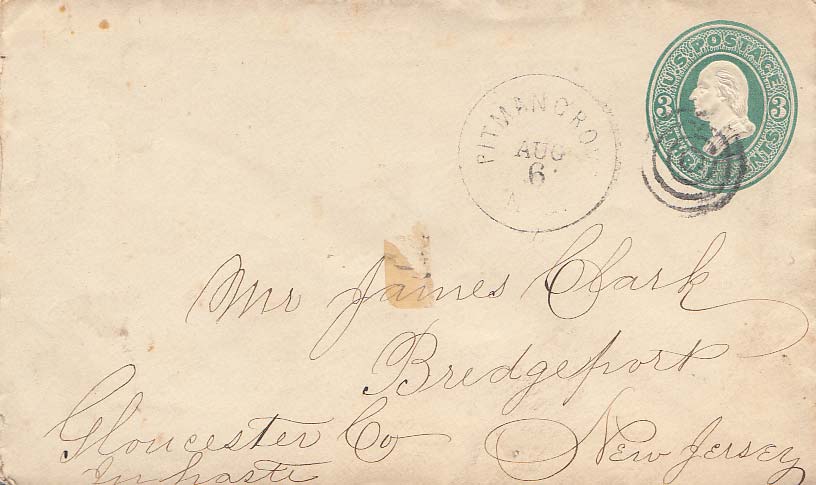 U.S. POSTAGE
3 3
PITMAN GRO
AUG
6
N
Mr James Clark
Bridgeport
Gloucester Co New Jersey
In haste